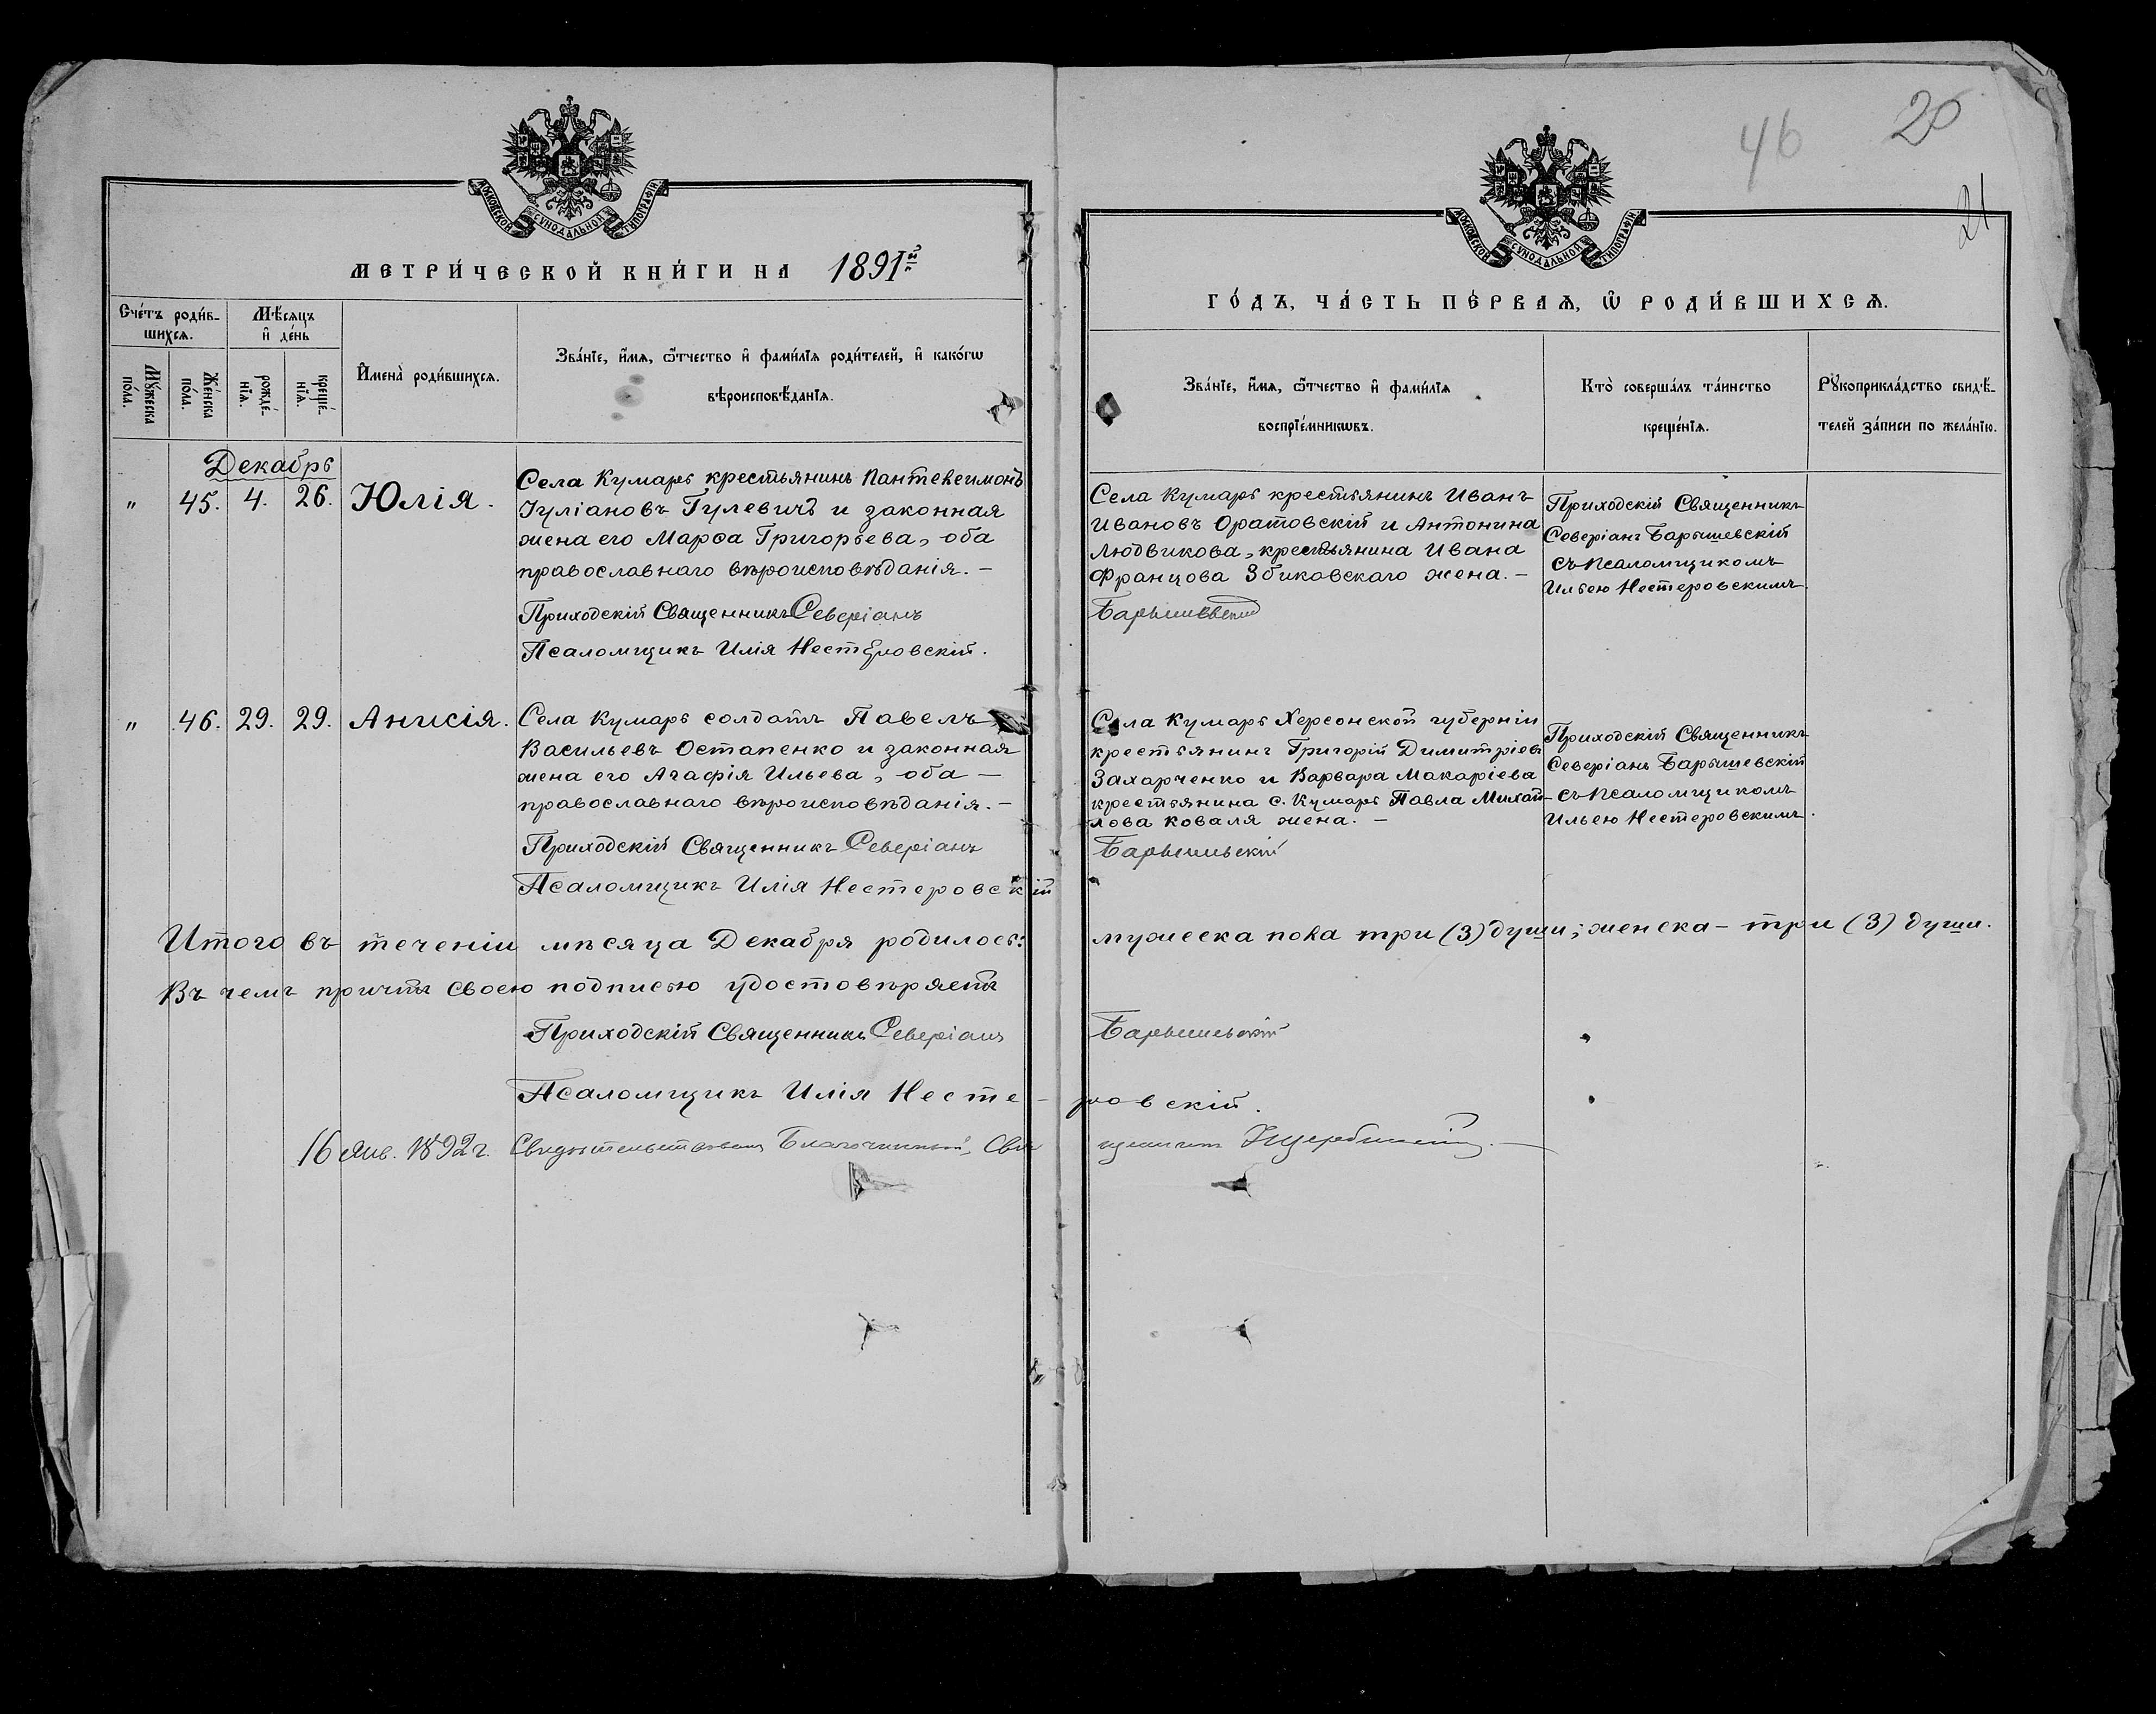 46
20
21
МОСКОВСКОЙ СУНОДАЛЬНОЙ ТУПОГРАФІИ
МОСКОВСКОЙ СУНОДАЛЬНОЙ ТУПОГРАФІИ
МЕТРИ́ЧЕСКОЙ КНИ́ГИ НА 1891й г
ГО́ДЪ, ЧА́СТЬ ПЕ́РВАѦ, Ѿ РОДИ́ВШИХСѦ.
Сче́тъ роди́в-
шихсѧ.
Мѣ́сѧцъ
и҆ де́нь
Мꙋ́жеска
по́ла.
Же́нска
по́ла.
рожде́-
нїѧ.
креще́-
нїѧ.
И҆мена̀ роди́вшихсѧ.
Зва́нїе, и҆́мѧ, ѻ҆́тчество и҆ фами́лїѧ роди́телей, и҆ како́гѡ
вѣроисповѣ́данїѧ.
Зва́нїе, и҆́мѧ, ѻ҆́тчество и҆ фами́лїѧ
воспрїе́мникѡвъ.
Кто̀ соверша́лъ та́инство
креще́нїѧ.
Рꙋкоприкла́дство свидѣ́-
телей за́писи по жела́нїю.
Декабрь
" 45. 4. 26. Юлія.
Села Кумаръ крестьянинъ Пантелеимонъ
Іуліановъ Гулевичъ и законная
жена его Марѳа Григорьева, оба
православнаго вѣроисповѣданія. —
Приходскій Священникъ Северіанъ
Псаломщикъ Илія Нестеровскій.
Села Кумаръ крестьянинъ Иванъ
Ивановъ Оратовскій и Антонина
Людвикова, крестьянина Ивана
Францова Збиковскаго жена. —
Барышевскій
Приходскій Священникъ
Северіанъ Барышевскій
съ псаломщикомъ
Ильею Нестеровскимъ.
" 46. 29. 29. Анисія.
Села Кумаръ солдатъ Павелъ
Васильевъ Остапенко и законная
жена его Агафія Ильева, оба —
православнаго вѣроисповѣданія. —
Приходскій Священникъ Северіанъ
Псаломщикъ Илія Нестеровскій
Села Кумаръ Херсонской губерніи
крестьянинъ Григорій Димитріевъ
Захарченко и Варвара Макаріева
крестьянина с. Кумаръ Павла Михай-
лова Коваля жена. —
Барышевскій
Приходскій Священникъ
Северіанъ Барышевскій
съ псаломщикомъ
Ильею Нестеровскимъ.
Итого въ теченіи мѣсяца Декабря родилось: мужеска пола три (3) души; женска – три (3) души.
Въ чемъ причтъ своею подписью удостовѣряетъ
Приходскій Священникъ Северіанъ Барышевскій
Псаломщикъ Илія Несте-ровскій.
16 Янв. 1892 г. Свидѣтельствовалъ Благочинный, Священникъ